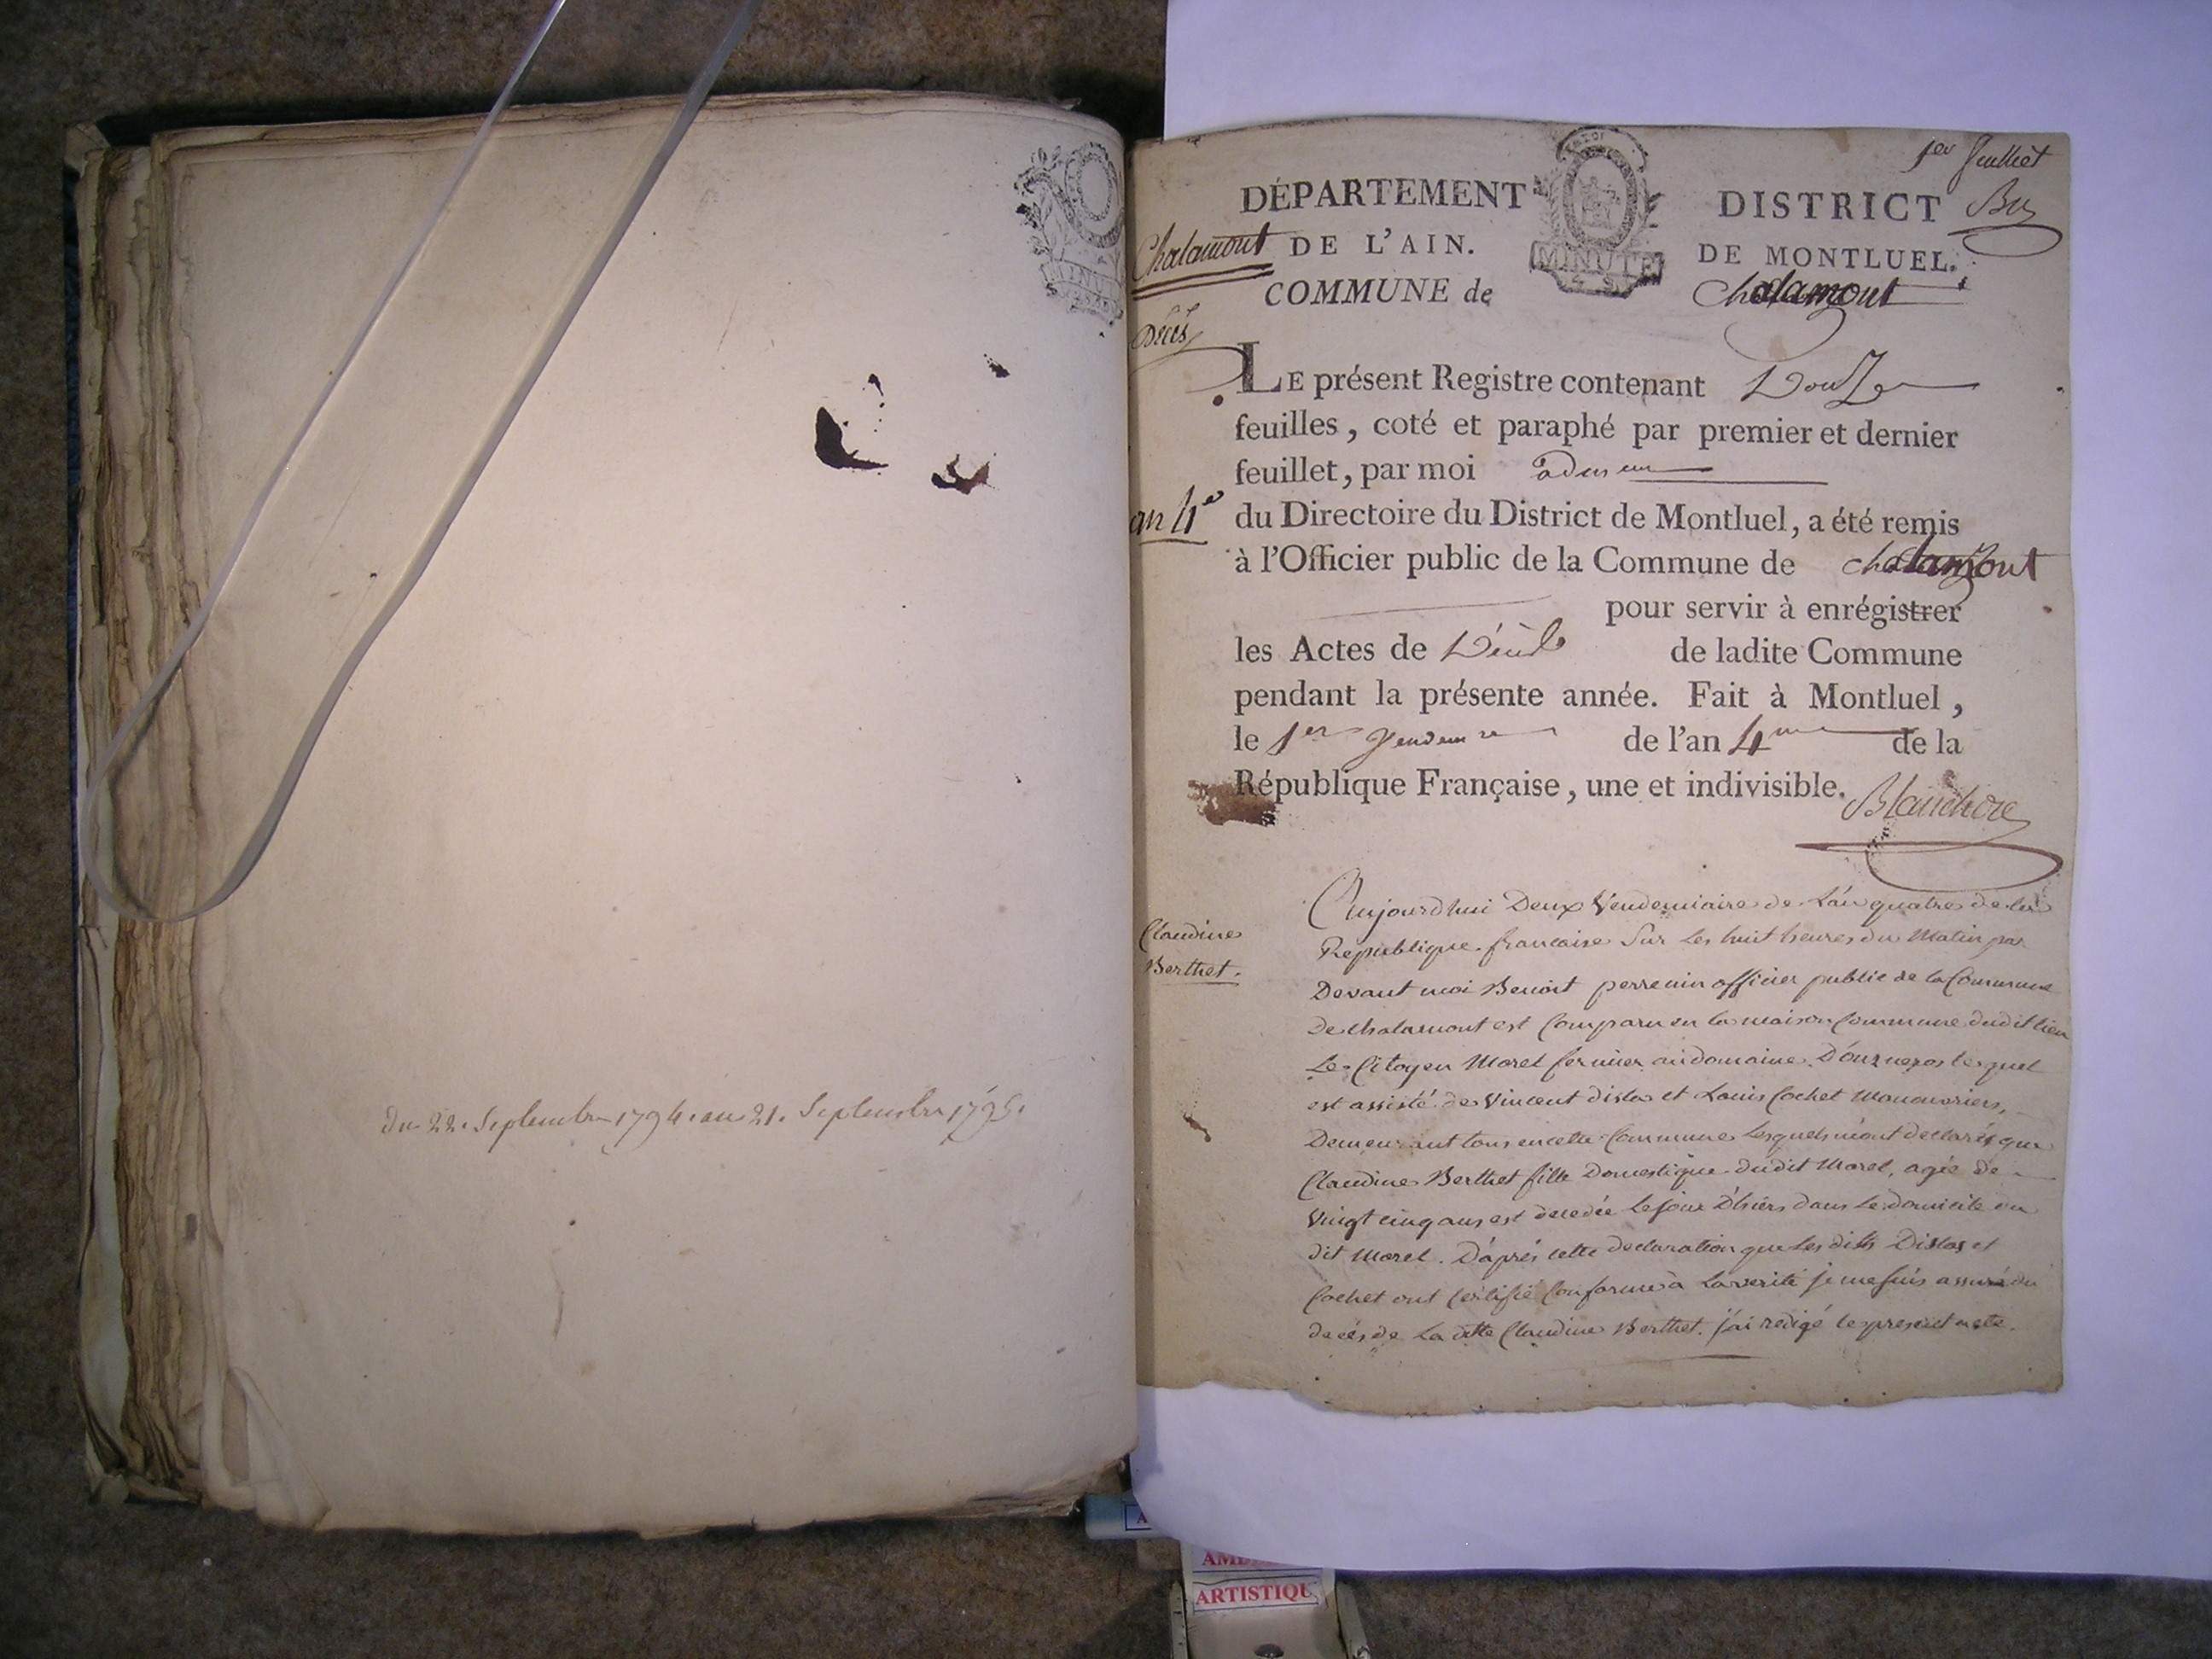 Du 22. Septembre 1794. au 21. Septembre 1795.
1er feuillet
DÉPARTEMENT
DISTRICT
Chalamont
DE L'AIN.
MINUTE
DE MONTLUEL.
COMMUNE de
Chalamont
Décès
LE présent Registre contenant Douze
feuilles, coté et paraphé par premier et dernier
feuillet, par moi
an 4e
du Directoire du District de Montluel, a été remis
à l'Officier public de la Commune de Chalamont
pour servir à enrégistrer
les Actes de Décès de ladite Commune
pendant la présente année. Fait à Montluel,
le 1er Vendem re de l'an 4me de la
République Française, une et indivisible.
Claudine
Berthet.
Aujourdhui Deux Vendemiaire de Lan quatre de la
Republique francaise Sur les huit heures du Matin par
Devant moi Benoit perrenin officier public de la Commune
De chalamont est Comparu en la maison Commune dudit lieu
Le Citoyen Morel fermier au domaine lequel
est assisté de Vincent Dislas et Louis Cochet Manouvriers,
Demeurant tous en cette Commune Lesquels mont declarés que
Claudine Berthet fille Domestique dudit Morel, agée de
Vingt cinq ans est decedée Le jour D'hiers dans Le domicile du
dit Morel. D'aprés cette declaration que Les dits Dislas et
Cochet ont Certifié Conforme à La verité je me suis assuré du
decés de La ditte Claudine Berthet. j'ai redigé le present acte.
AMB
ARTISTIQU